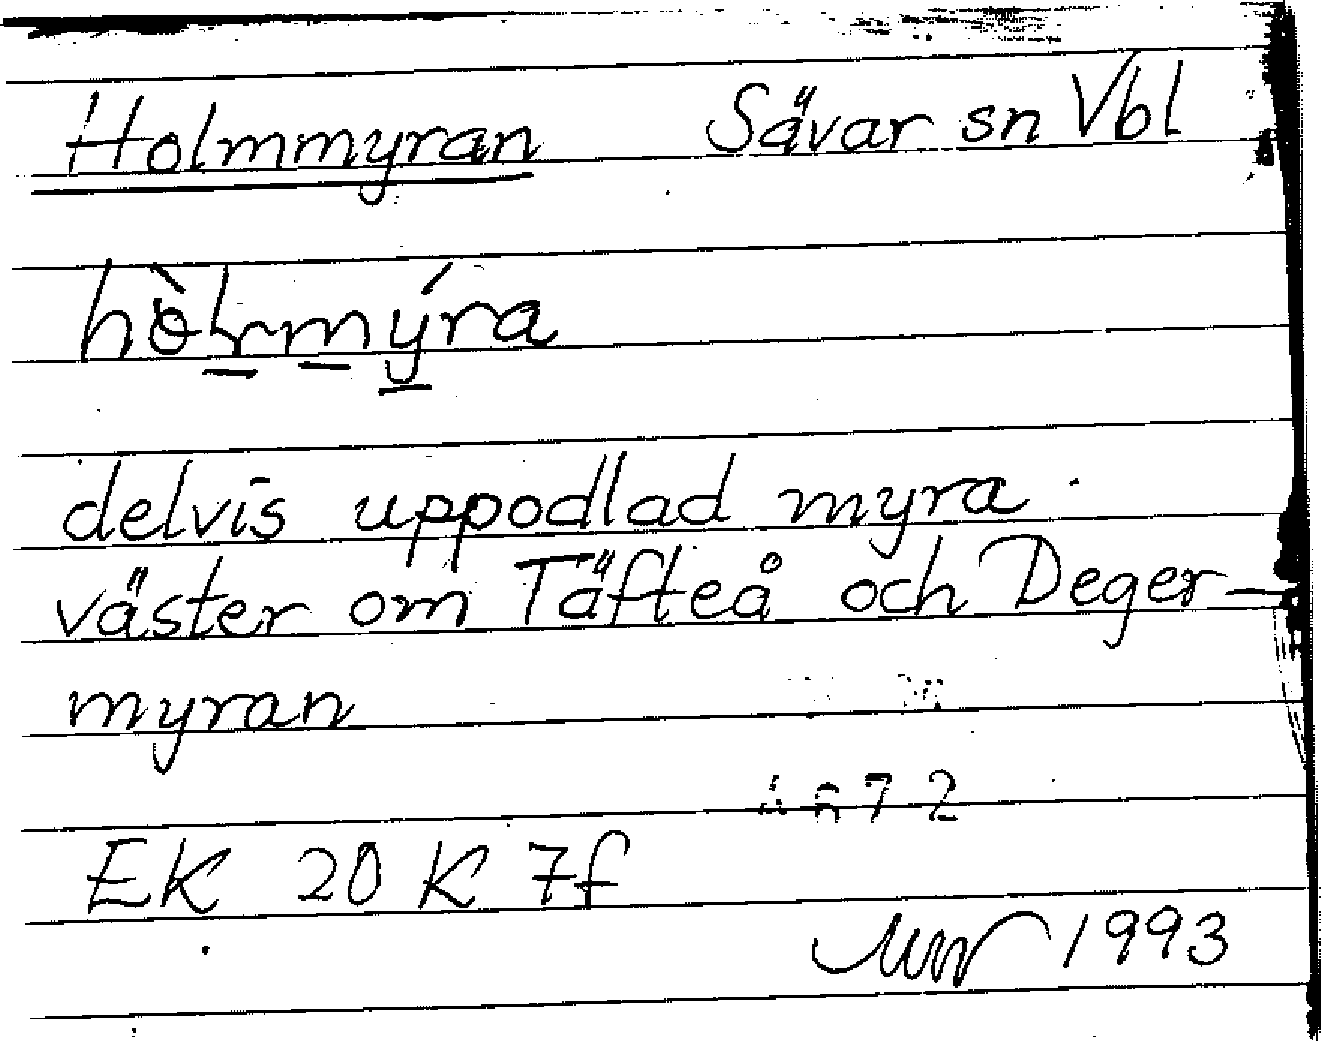 Holmmyran Sävar sn Vbl
delvis uppodlad myra
väster om Täfteå och Deger-
myran
EK 20 K 7f
1993